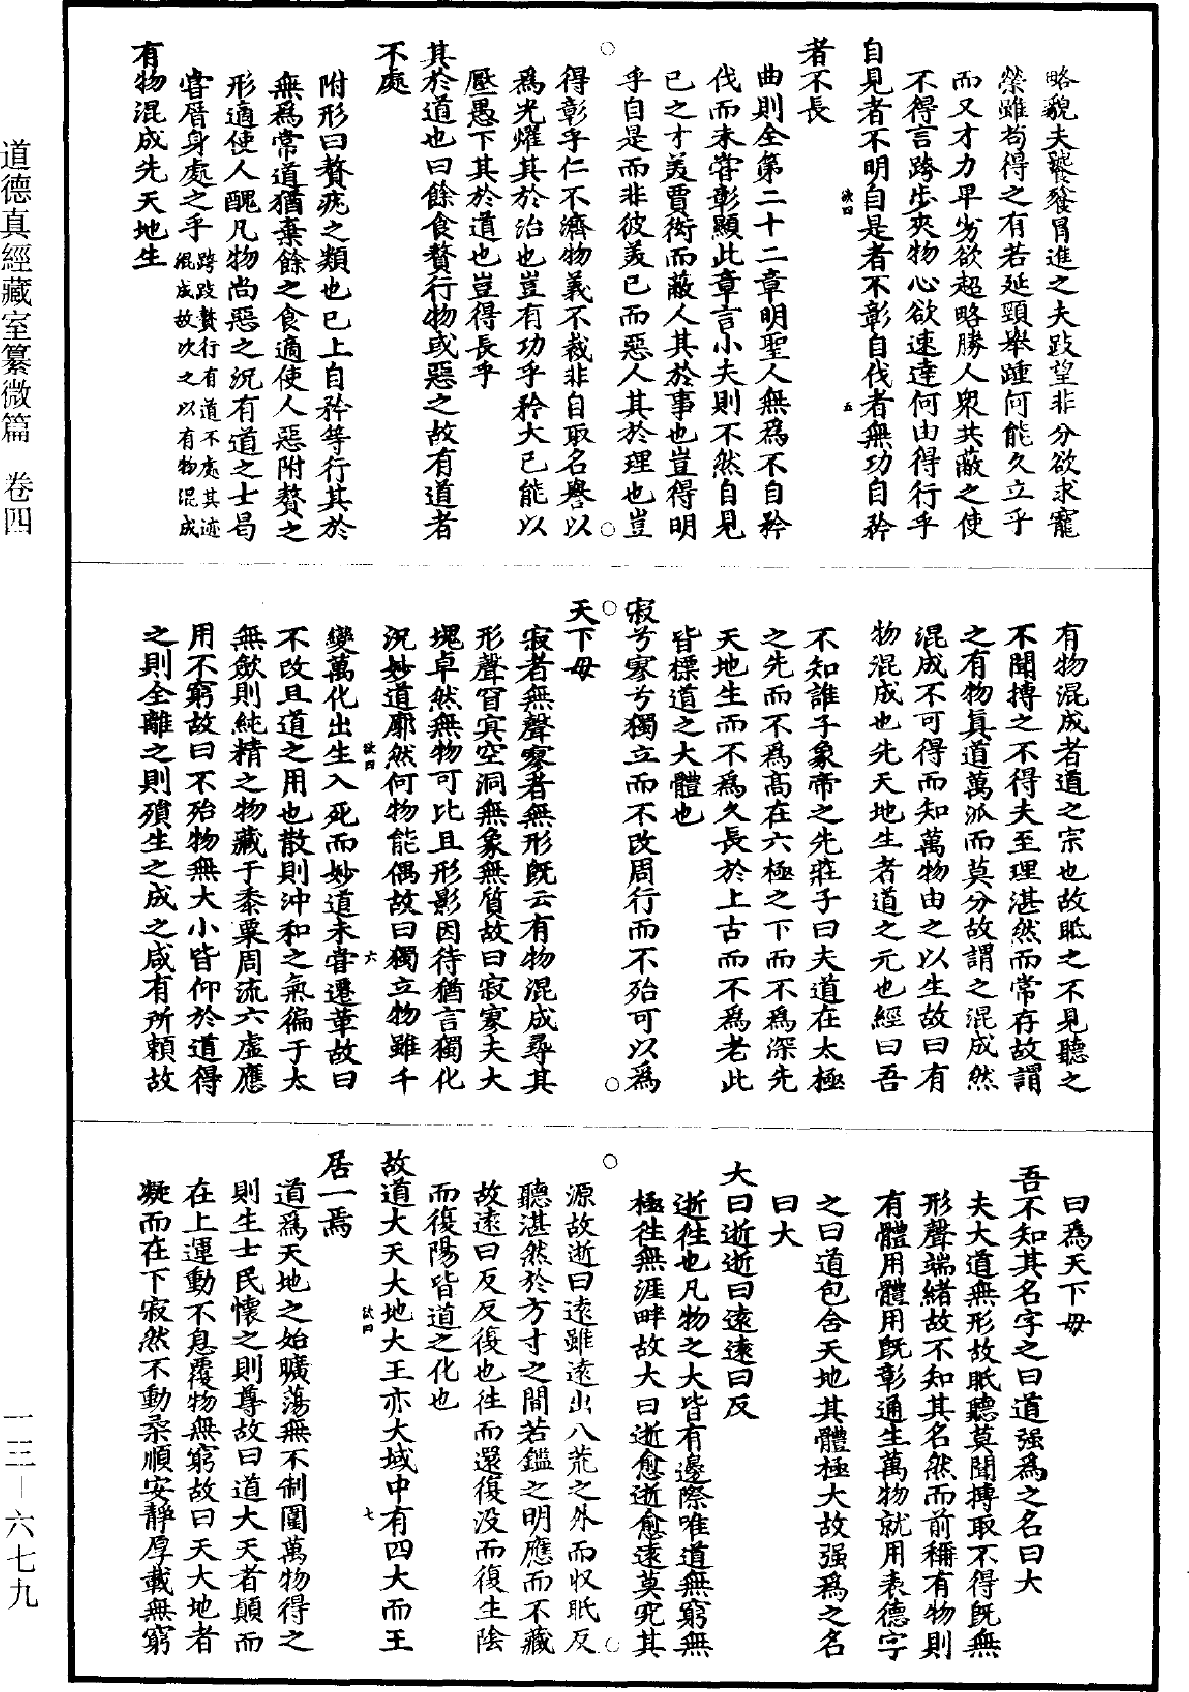 略貌夫饕餮冒進之夫跂望非分欲求寵
榮雖苟得之有若延頸舉踵何能久立乎
而又才力卑劣欲超略勝人眾共蔽之使
不得言跨步夾物心欲速達何由得行乎
自見者不明自是者不彰自伐者無功自矜
者不長
曲則全第二十二章明聖人無為不自矜
伐而未嘗彰顯此章言小夫則不然自見
已之才美賈衒而蔽人其於事也豈得明
乎自是而非彼美已而惡人其於理也豈
得彰乎仁不濟物義不裁非自取名譽以
為光耀其於治也豈有功乎矜大已能以
壓愚下其於道也豈得長乎
其於道也曰餘食贅行物或惡之故有道者
不處
附形曰贅疣之類也已上自矜等行其於
無為常道猶棄餘之食適使人惡附贅之
形適使人醜凡物尚惡之況有道之士曷
嘗厝身處之乎跨跂贅行有道不處其迹
混成故次之以有物混成
有物混成先天地生
有物混成者道之宗也故眂之不見聽之
不聞搏之不得夫至理湛然而常存故謂
之有物真道萬派而莫分故謂之混成然
混成不可得而知萬物由之以生故曰有
物混成也先天地生者道之元也經曰吾
不知誰子象帝之先莊子曰夫道在太極
之先而不為高在六極之下而不為深先
天地生而不為久長於上古而不為老此
皆標道之大體也
寂兮寥兮獨立而不改周行而不殆可以為
天下母
寂者無聲寥者無形既云有物混成尋其
形聲窅冥空洞無象無質故曰寂寥夫大
塊卓然無物可比且形影因待猶言獨化
況妙道廓然何物能偶故曰獨立物雖千
變萬化出生入死而妙道未嘗遷革故曰
不改且道之用也散則沖和之氣徧于太
無斂則純精之物藏于黍粟周流六虛應
用不窮故曰不殆物無大小皆仰於道得
之則全離之則殞生之成之咸有所賴故
曰為天下母
吾不知其名字之曰道强為之名曰大
夫大道無形故眂聽莫聞搏取不得既無
形聲端緒故不知其名然而前稱有物則
有體用體用既彰通生萬物就用表德字
之曰道包含天地其體極大故强為之名
曰大
大曰逝逝曰遠遠曰反
逝往也凡物之大皆有邊際唯道無窮無
極往無涯畔故大曰逝愈逝愈遠莫究其
源故逝曰遠雖遠出八荒之外而収眂反
聽湛然於方寸之間若鑑之明應而不藏
故遠曰反反復也往而還復没而復生陰
而復陽皆道之化也
故道大天大地大王亦大域中有四大而王
居一焉
道為天地之始曠蕩無不制圍萬物得之
則生士民懷之則尊故曰道大天者顛而
在上運動不息覆物無窮故曰天大地者
凝而在下寂然不動柔順安靜厚載無窮
道德真經藏室纂微篇 卷四
一三－六七九